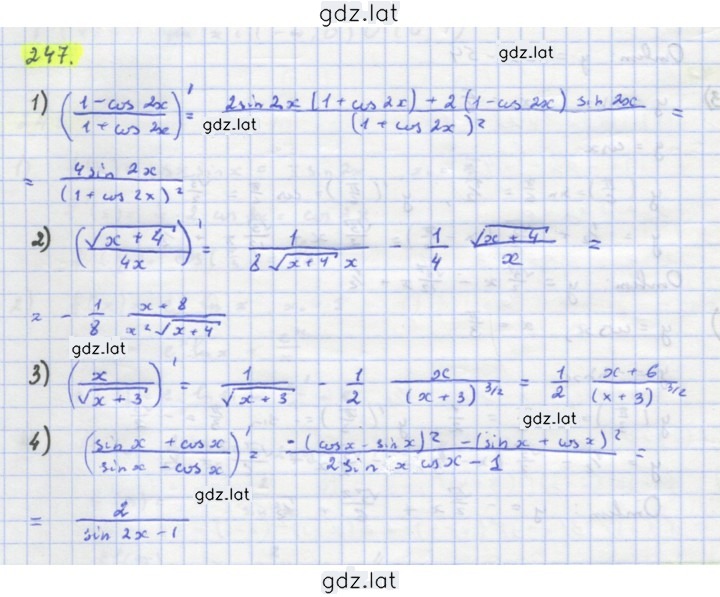 gdz.lat
247.
gdz.lat
1) ((1-cos 2x)/(1+cos 2x))' = (2sin 2x (1+cos 2x) + 2(1-cos 2x) sin 2x)/((1+cos 2x)²) =
gdz.lat
= (4sin 2x)/((1+cos 2x)²)
2) (√(x+4)/(4x))' = 1/(8√(x+4) x) - 1/4 √(x+4)/x =
= - 1/8 (x+8)/(x²√(x+4))
gdz.lat
3) (x/√(x+3))' = 1/√(x+3) - 1/2 x/((x+3)^(3/2)) = 1/2 (x+6)/((x+3)^(3/2))
gdz.lat
4) ((sin x + cos x)/(sin x - cos x))' = (-(cos x - sin x)² - (sin x + cos x)²)/(2 sin x cos x - 1) =
gdz.lat
= 2/(sin 2x - 1)
gdz.lat